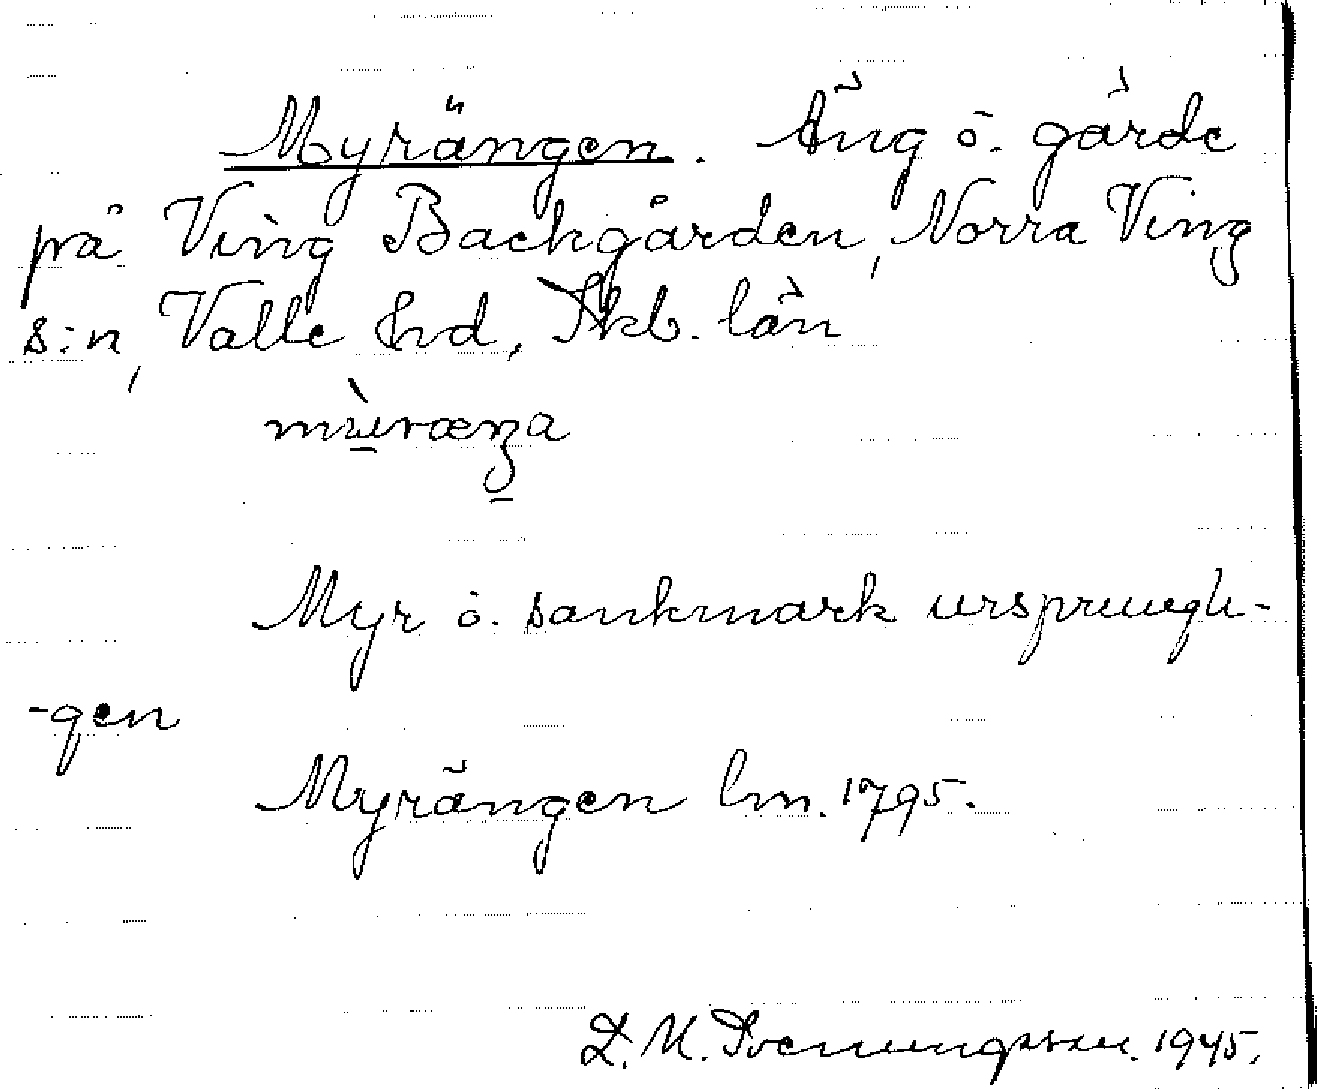 Myrängen. Äng o. gärde
på Ving Backgården, Norra Ving
s:n, Valle hd, Skb. län
Myr o. sankmark ursprungli-
-gen
Myrängen lm. 1795.
D. M. Svenungsson. 1945.